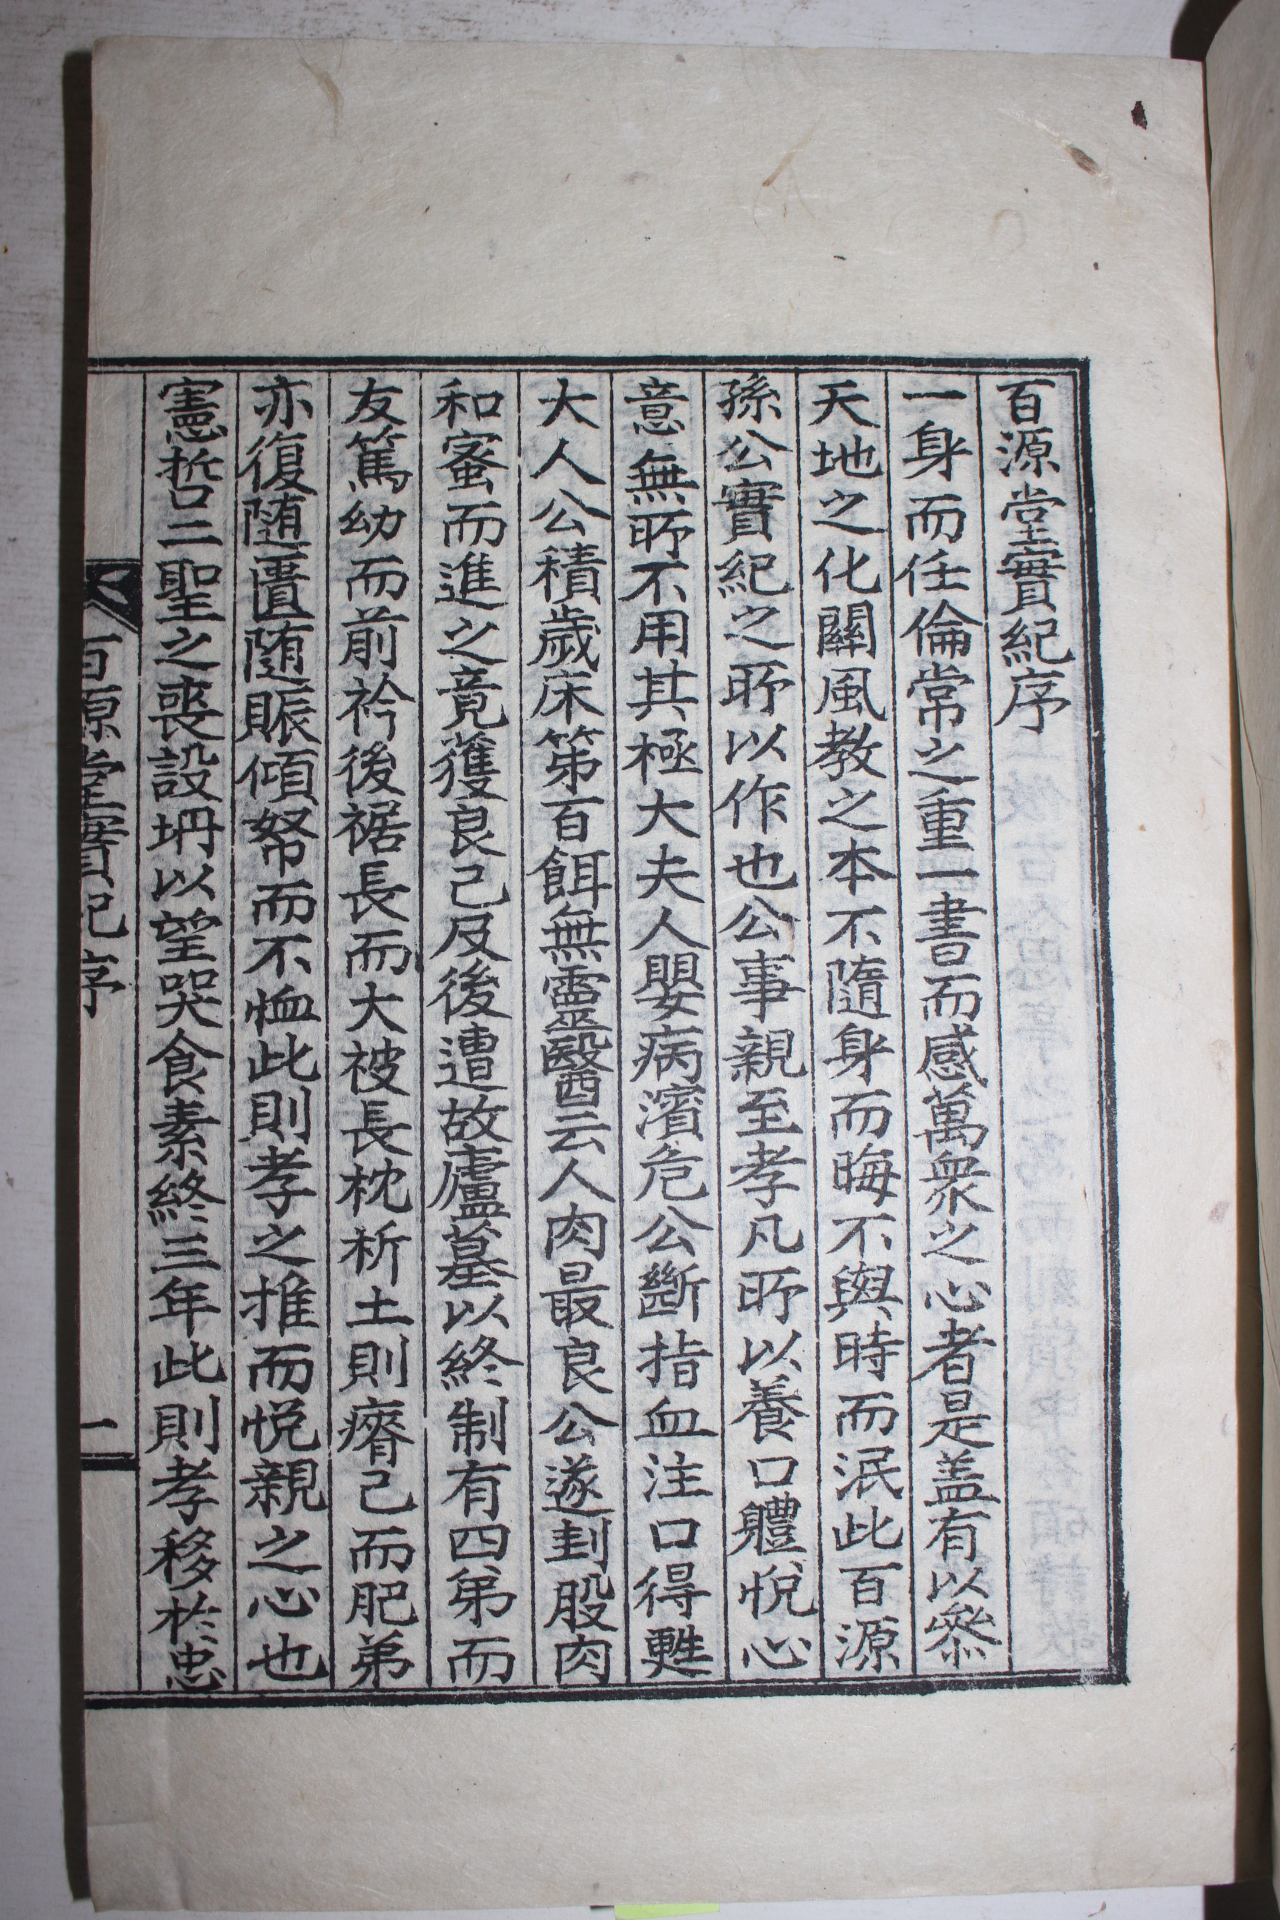 百源堂實紀序
一身而任倫常之重一書而感萬衆之心者是盖有以叅
天地之化關風教之本不隨身而晦不與時而泯此百源
孫公實紀之所以作也公事親至孝凡所以養口體悅心
意無所不用其極大夫人嬰病濱危公斷指血注口得甦
大人公積歲床第百餌無靈醫云人肉最良公遂刲股肉
和蜜而進之竟獲良已及後遭故廬墓以終制有四弟而
友篤幼而前衿後裾長而大被長枕析土則瘠己而肥弟
亦復随匱随賑傾帑而不恤此則孝之推而悅親之心也
憲哲二聖之喪設坍以望哭食素終三年此則孝移於忠
百源堂實紀序